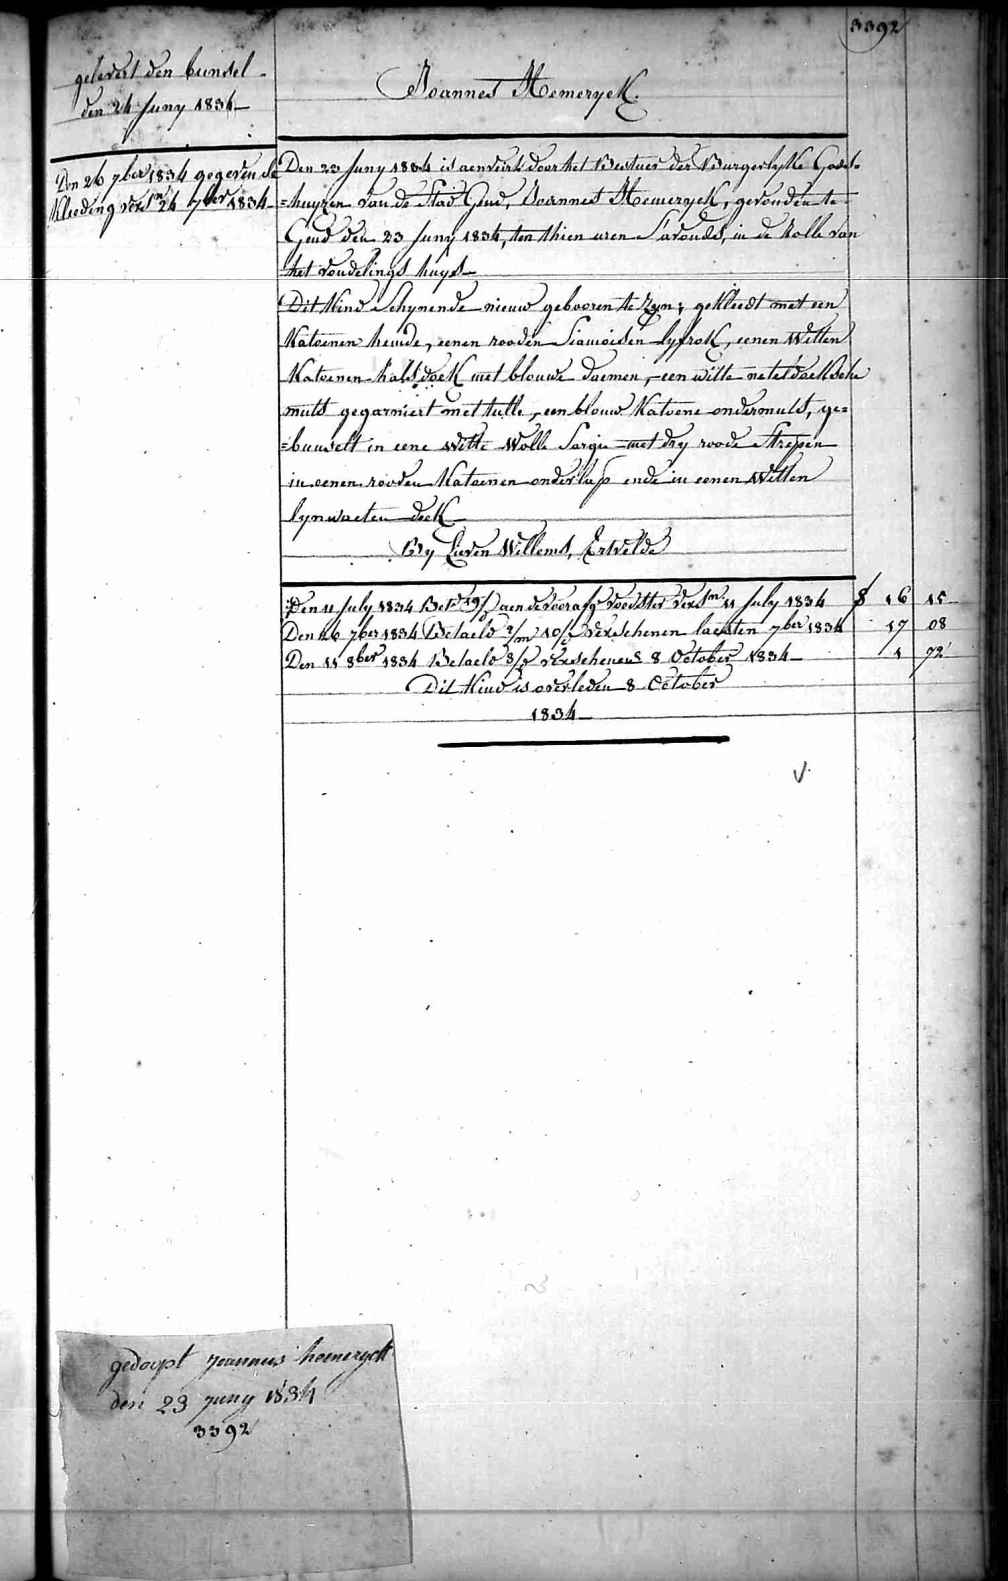 3392
gelevert den bunsel
den 24 Juny 1834
Joannes Hemeryck.
Den 26 7ber 1834 gegeven de
kleeding versn 24 7ber 1834
Den 23 Juny 1834 is aenveird door het Bestuer der Burgerlyke Gods-
=huyzen van de Stad Gend, Joannes Hemeryck, gevonden te
Gend den 23 Juny 1834, ten thien uren S'avonds, in de Rolle van
het vondelings huys
Dit Kind Schynende nieuw gebooren te zyn; gekleedt met een
Katoenen hemde, eenen rooden Siamoisen lyfrok, eenen Witten
Katoenen halsdoek met blouwe daemen, een witte neteldoeksche
muts gegarniert met tulle, een blouw Katoene ondermuts, ge=
=bunselt in eene Witte Wolle Sargie met dry roode Strepen
in eenen rooden Katoenen onderlyf ende in eenen Witten
lynwaeten doek
By Lieven Willems, Ertvelde
Den 11 July 1834 Betd 19/d aen de voorafg voedster versn 11 July 1834 f 16 15
Den 26 7ber 1834 Betaeld 2/m 10/d verschenen laesten 7ber 1834 17 08
Den 11 8ber 1834 Betaeld 8/d verschenen 8 October 1834 1 72
Dit Kind is overleden 8 October
1834
gedoopt Joannes hemeryck
den 23 Juny 1834
3392